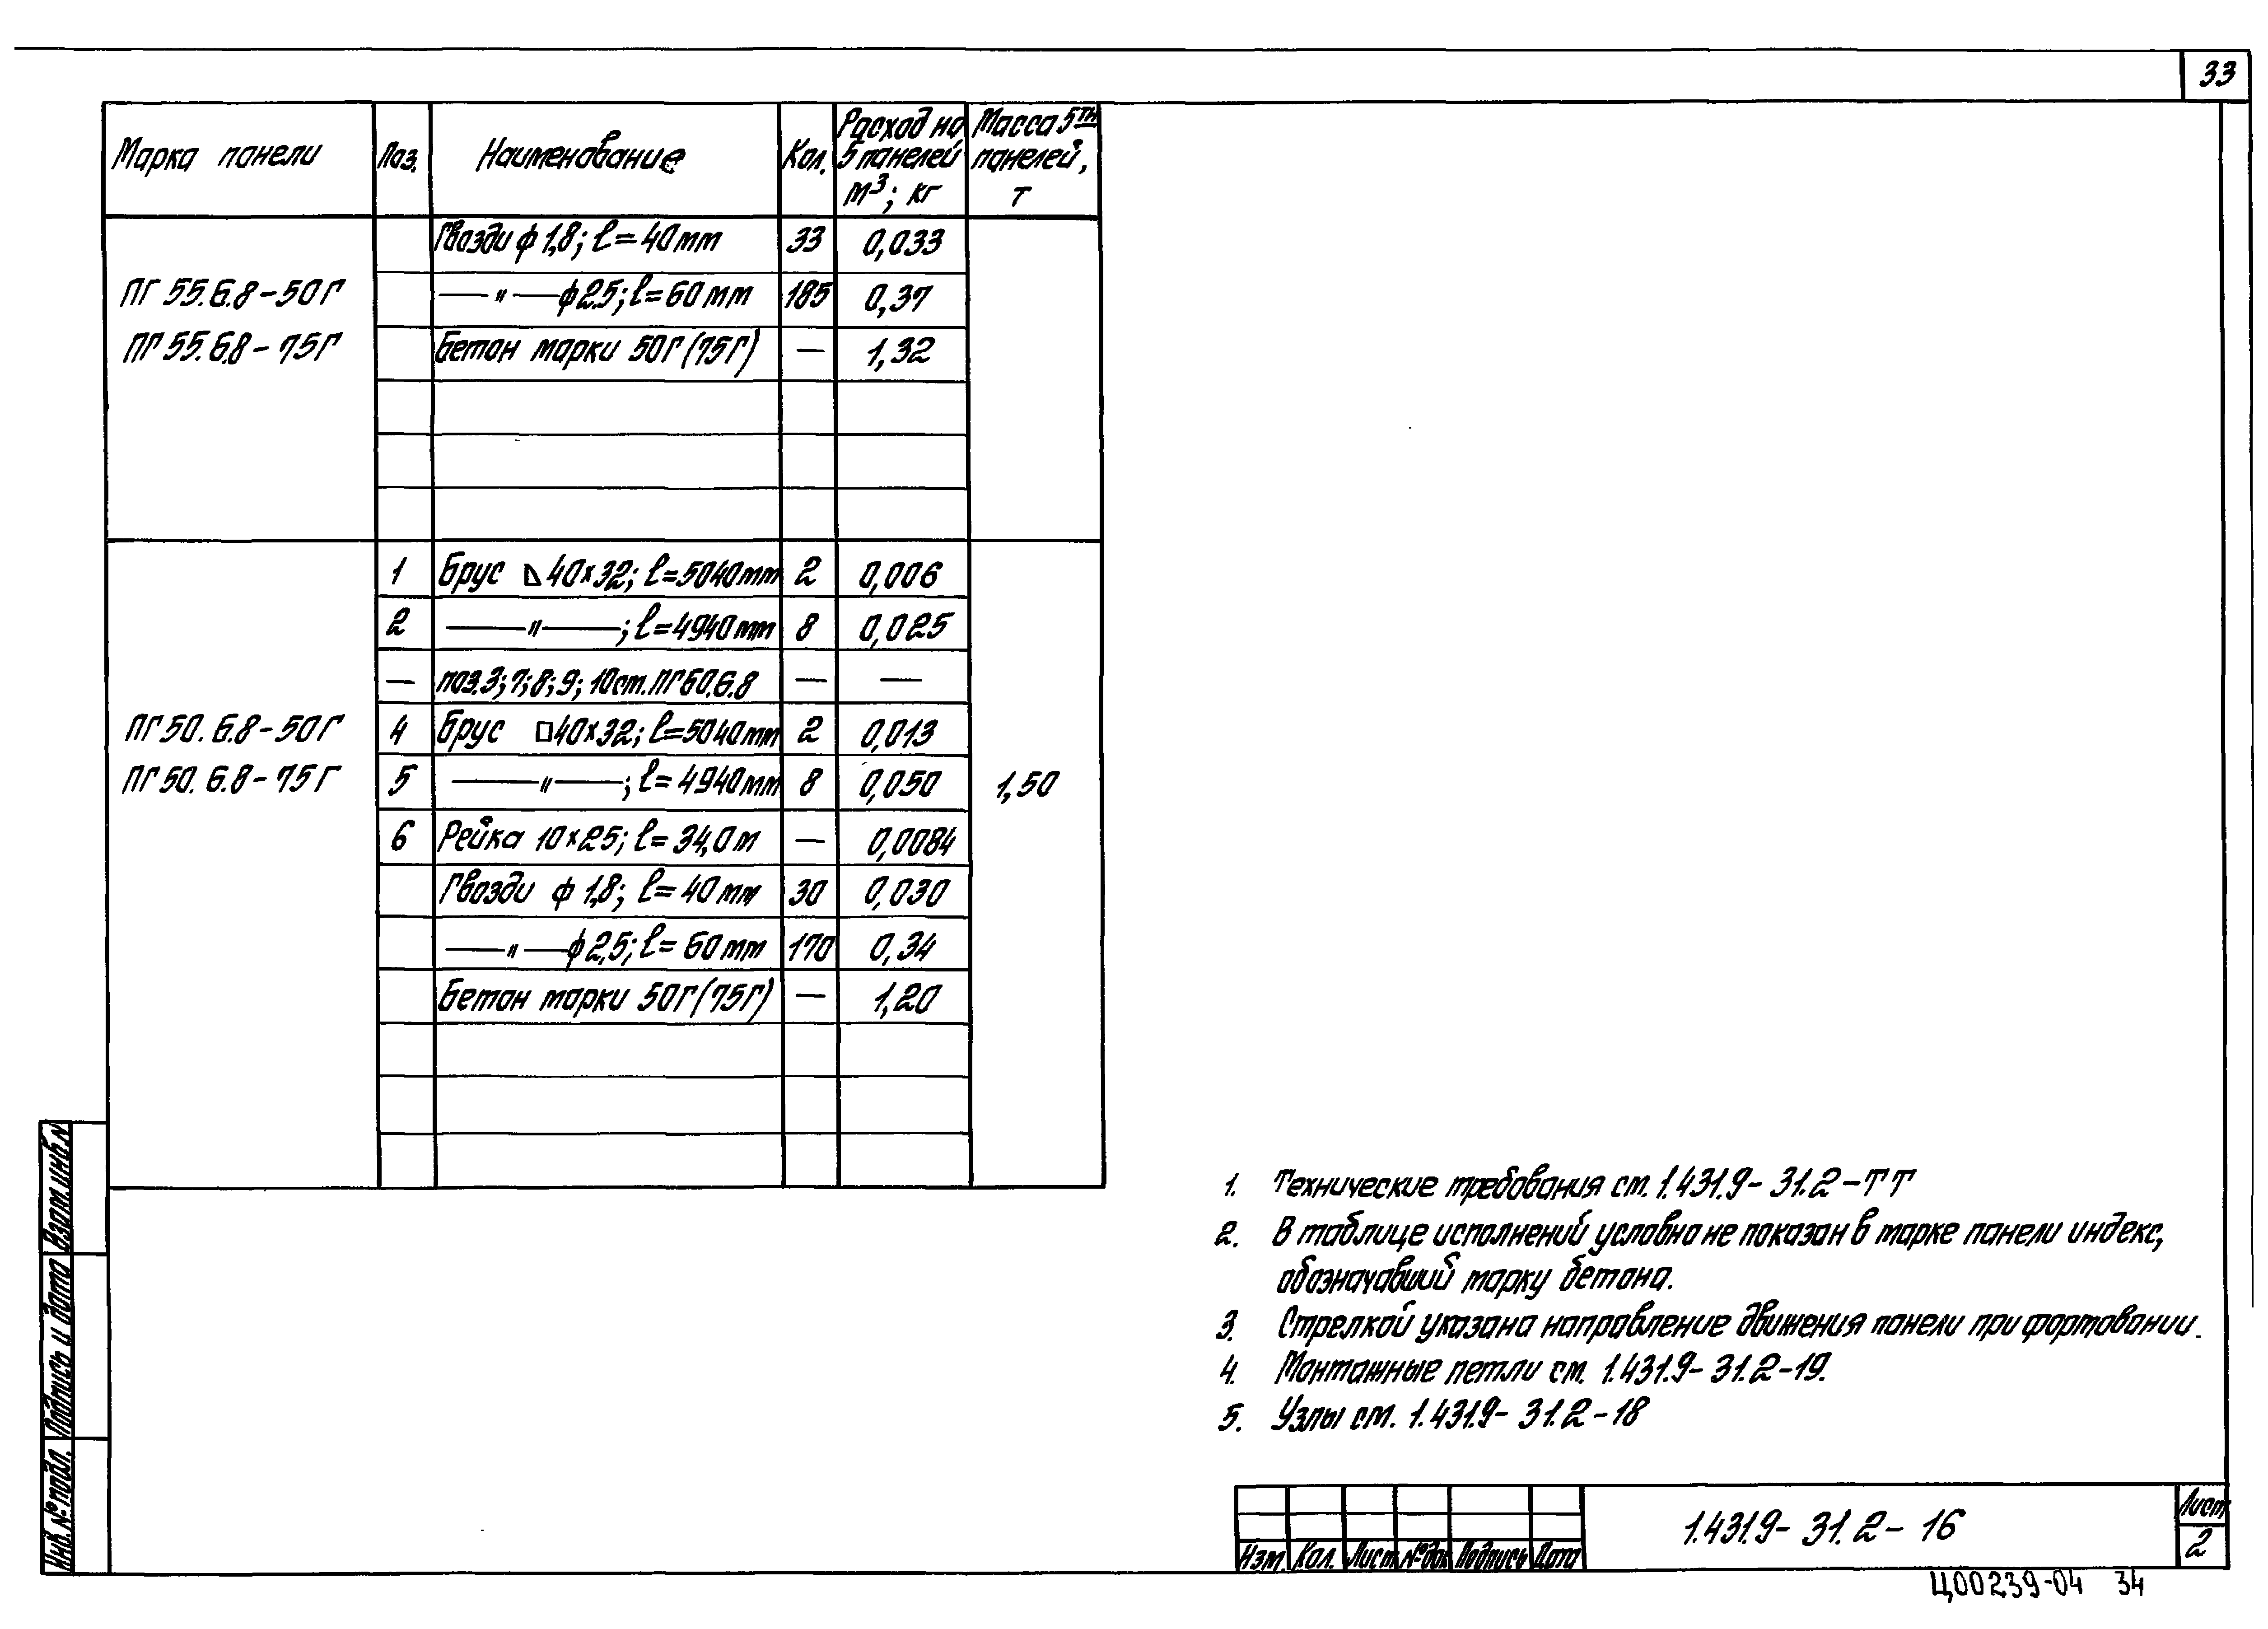 33
Марка панели | Поз. | Наименование | Кол. | Расход на 5 панелей м³; кг | Масса 5ти панелей, т
Гвозди ф 1,8; ℓ=40мм | 33 | 0,033
ПГ 55.6.8-50Г | —"— ф2.5; ℓ=60мм | 185 | 0,37
ПГ 55.6.8-75Г | Бетон марки 50Г (75Г) | — | 1,32
1 | Брус ◺40×32; ℓ=5040мм | 2 | 0,006
2 | —"—; ℓ=4940мм | 8 | 0,025
— | поз.3; 7; 8; 9; 10 см. ПГ60.6.8 | — | —
ПГ50.6.8-50Г | 4 | Брус □40×32; ℓ=5040мм | 2 | 0,013
ПГ50.6.8-75Г | 5 | —"—; ℓ=4940мм | 8 | 0,050 | 1,50
6 | Рейка 10×25; ℓ=34,0м | — | 0,0084
Гвозди ф 1,8; ℓ=40мм | 30 | 0,030
—"— ф2,5; ℓ=60мм | 170 | 0,34
Бетон марки 50Г (75Г) | — | 1,20
1. Технические требования см. 1.431.9-31.2-ТТ
2. В таблице исполнений условно не показан в марке панели индекс,
обозначавший марку бетона.
3. Стрелкой указана направление движения панели при формовании.
4. Монтажные петли см. 1.431.9-31.2-19.
5. Узлы см. 1.431.9-31.2-18
Инв. № подл. | Подпись и дата | Взам. инв. №
Изм. | Кол. | Лист | № док | Подпись | Дата
1.431.9-31.2-16
Лист
2
Ц00239-04 34